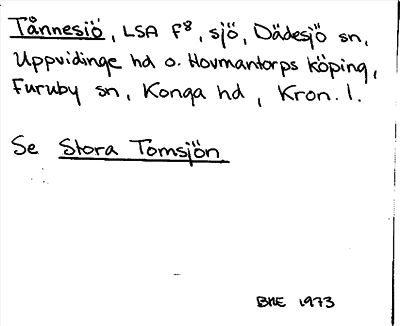 Tånnesjö, LSA F⁸, sjö, Dädesjö sn,
Uppvidinge hd o. Hovmantorps köping,
Furuby sn, Konga hd, Kron. l.
Se Stora Tomsjön
BHE 1973